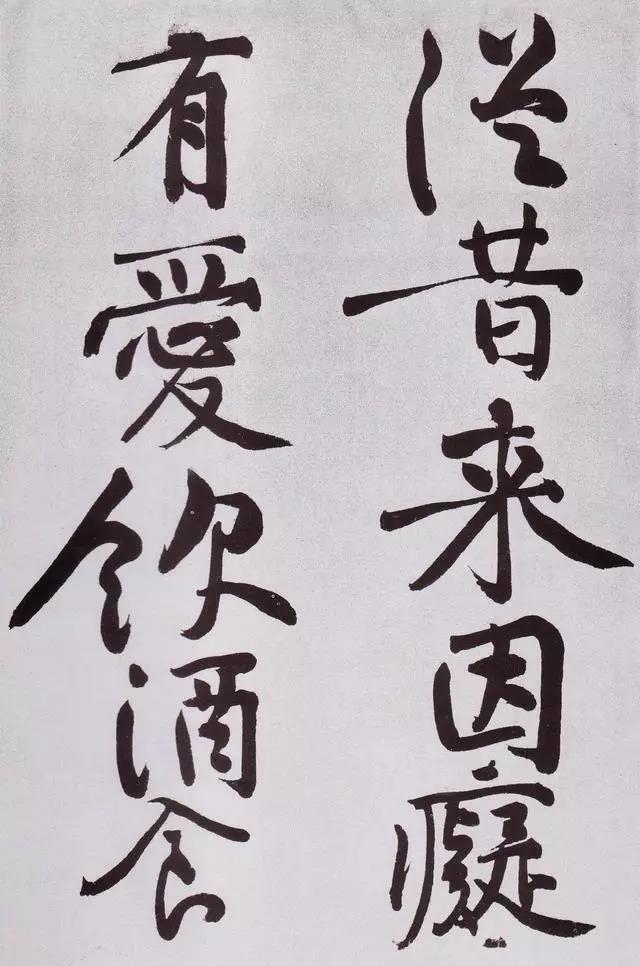 從昔来因癡
有愛飲酒食